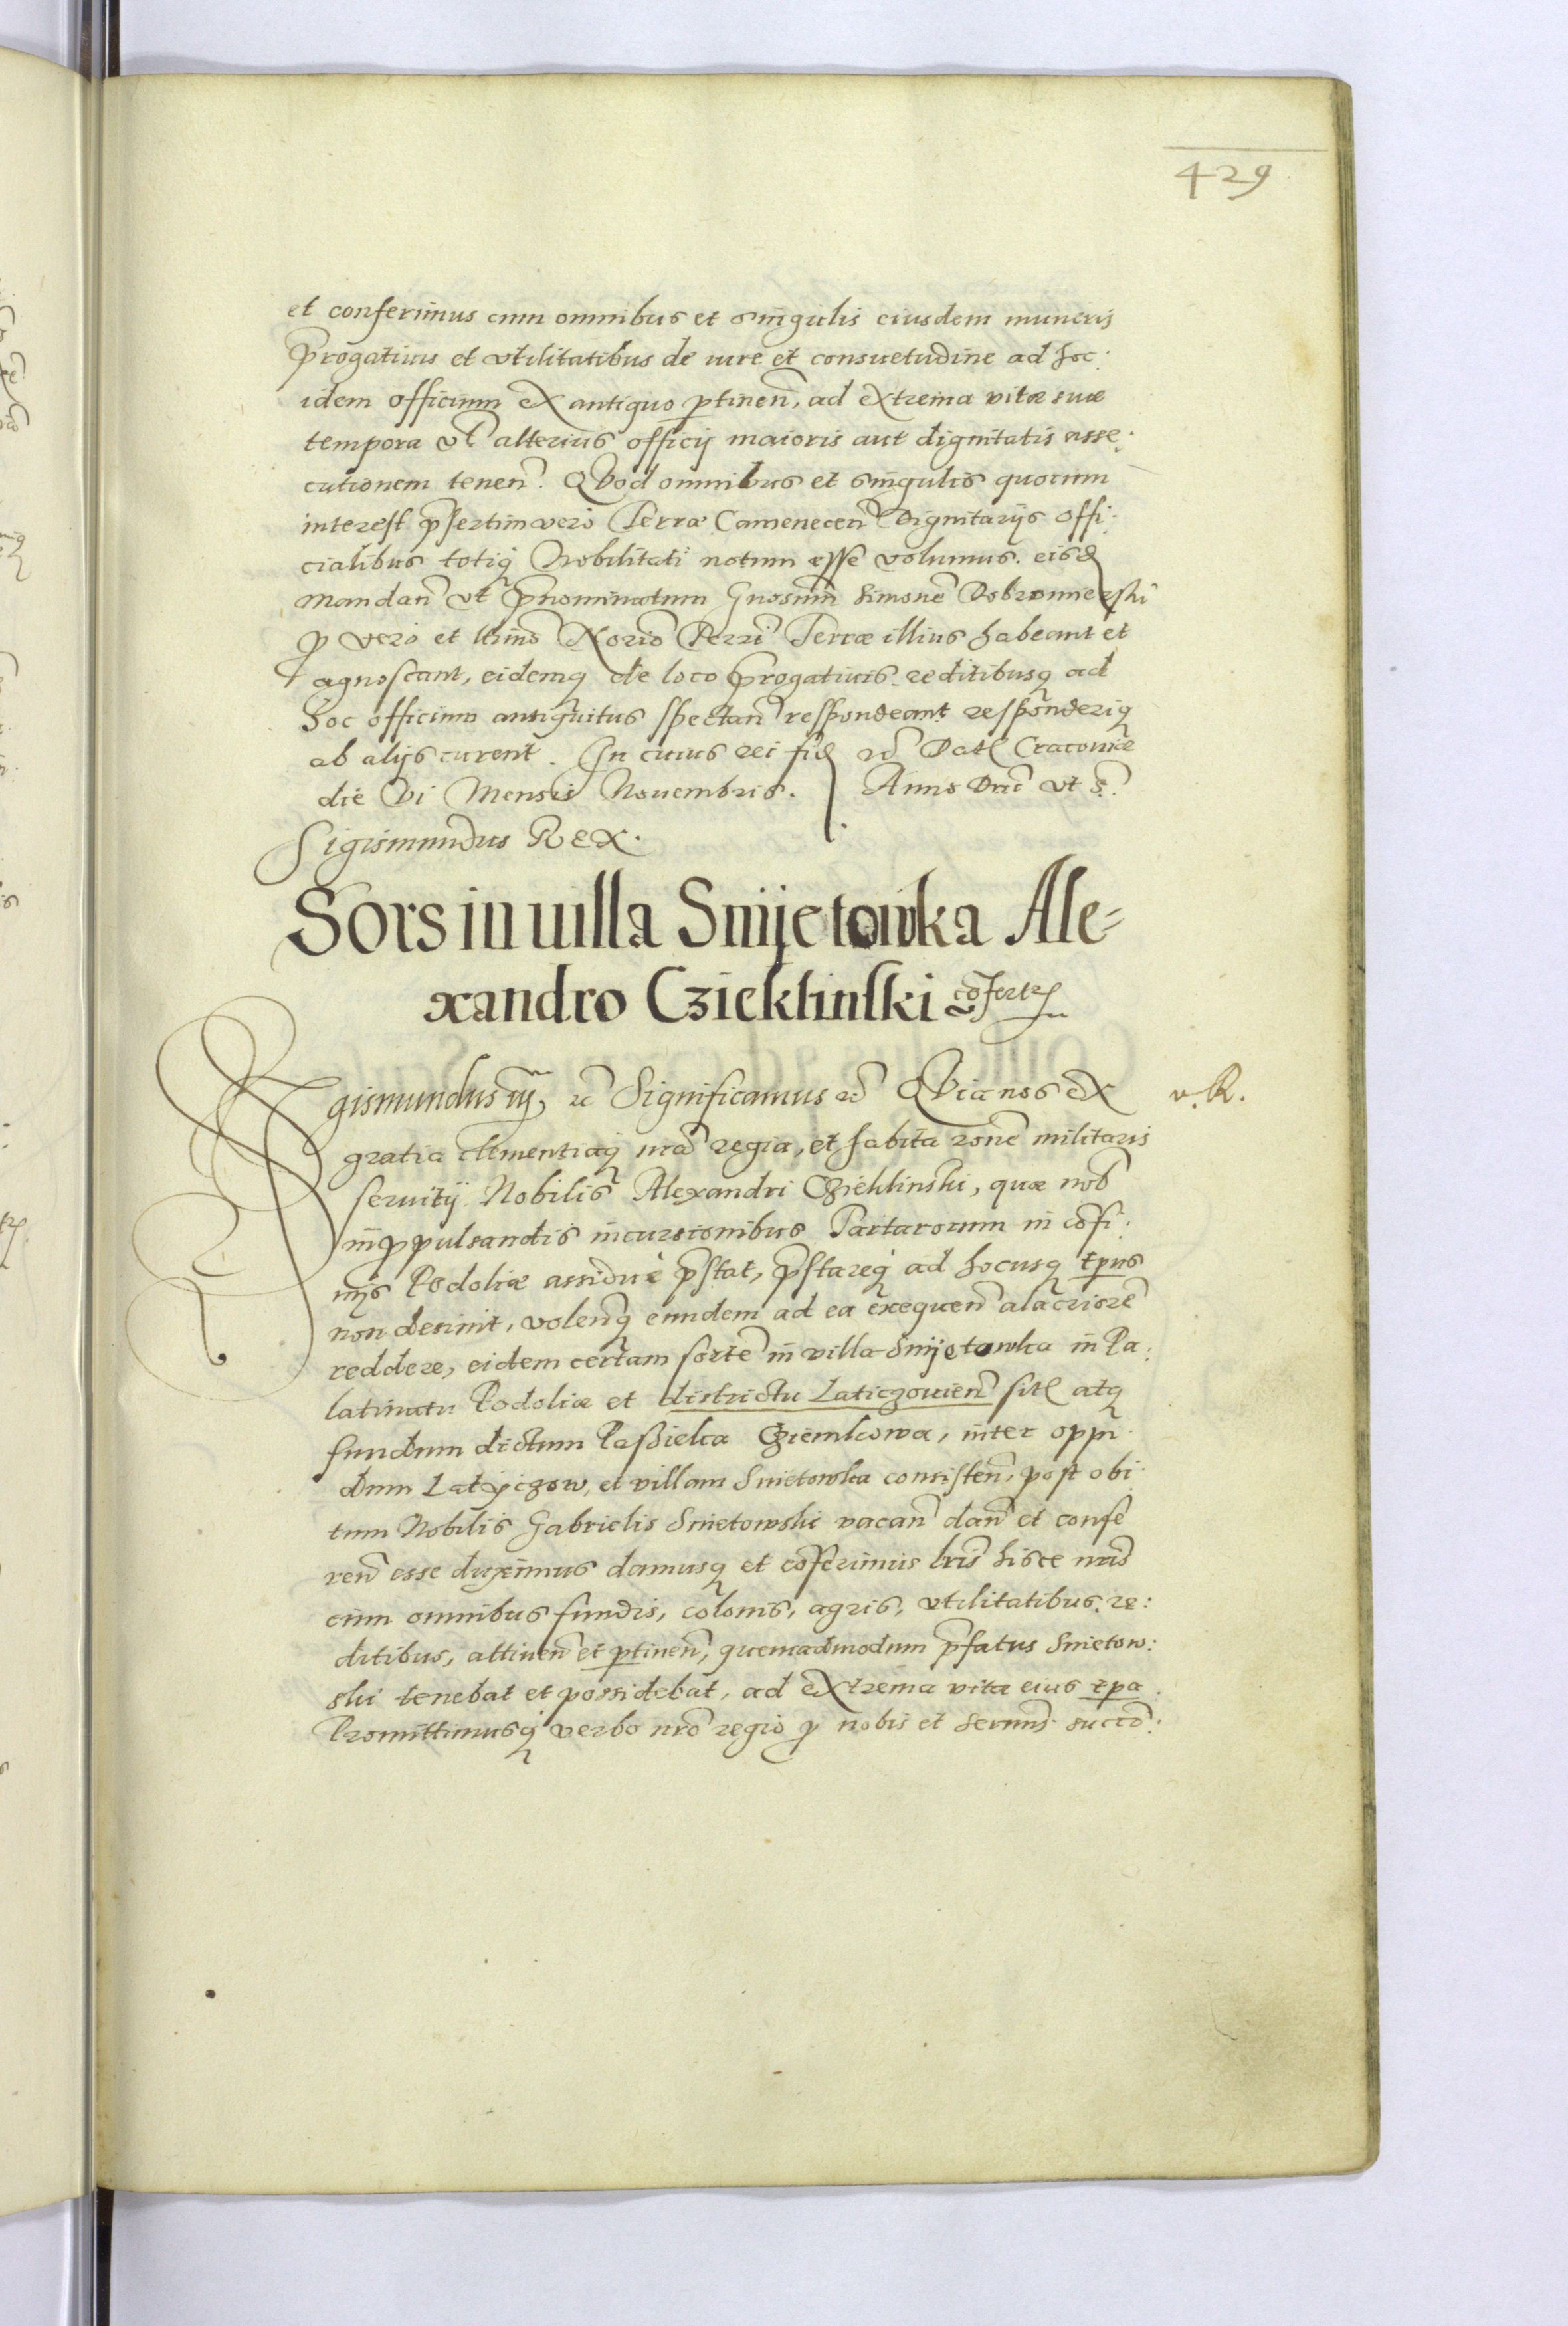 429
et conferimus cum omnibus et singulis eiusdem muneris
progatiuis et vtilitatibus de iure et consuetudine ad hoc:
idem officium ex antiquo ptinen, ad extrema vitæ suæ
tempora vl alterius officij maioris aut dignitatis asse:
cutionem tenen. Qvod omnibus et singulis quorum
interest psertim vero Terræ Camenecen Dignitarijs offi:
cialibus totiq Nobilitati notum esse volumus. eisd
mandan vt pnominatum Gnosum Simone Dobromierski
p vero et ltimo Norio Terri Terræ illius habeant et
agnoscant, eidemq de loco progatiuis reditibusq ad
hoc officium antiquitus spectan respondeant responderiq
ab alijs curent. In cuius rei fid rc Dat Cracouiæ
die vi Mensis Nouembris. Anno Dni vt s.
Sigismundus Rex.
Sors in uilla Smijetowka Ale=
xandro Czieklinski cofertr
Sigismundus iij, rc Significamus rc Qvia nos ex
v. R.
gratia clementiaq nra regia, et habita rone militaris
seruitij Nobilis Alexandri Cziehlinski, quæ nob
in ppulsandis incursionibus Tartarorum in cofi:
nijs Podoliæ assidue pstat, pstareq ad hocusq tpus
non desinit, volenq eundem ad ea exequen alacriore
reddere, eidem certam sorte in villa Smijetowka in Pa:
latinatu Podoliæ et districtu Laticzouien sit atq
fundum dictum Paßieka Cziemkowa, inter oppi:
dum Latyiczow, et villam Smetowka consisten, post obi:
tum Nobilis Gabrielis Smetowski vacan dan et confe
ren esse duximus damusq et coferimus lris hisce nris
cum omnibus fundis, colonis, agris, vtilitatibus, re:
ditibus, attinen et ptinen, quemadmodum pfatus Smetow:
ski tenebat et possidebat, ad extrema vitæ eius tpa.
Promittimusq verbo nro regio p nobis et Sermis succo: